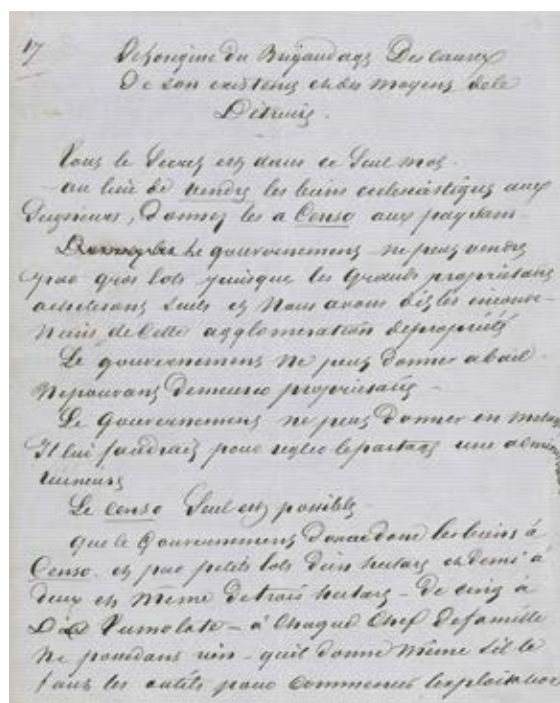 17
De l'origine du Brigandage Des causes
De son existence et des moyens de le
Détruire.
Tous le Secret est dans ce Seul mot.
au lieu de vendre les biens ecclesiastiques aux
Seigneurs, Donnez les a Censo aux paysans.
Le gouvernement ne peut vendre
que gros lots puisque les Grands propriétaires
acheterons Seuls et Nous avons dit les inconve-
niens de Cette agglomeration de propriétés
Le gouvernement ne peut donner a bail
Ne pouvant demeurer propriétaire -
Le Gouvernement ne peut donner en
Il lui faudrait pour regler le partage une
Le Censo Seul est possible
que le Gouvernement Donne donc les biens à
Censo. et par petits lots d'un hectare et demi a
deux et Même de trois hectares - De cinq à
Dix - à Chaque Chef de famille
Ne possedant rien - qu'il donne Même s'il le
faut les outils pour Commencer l'exploitation